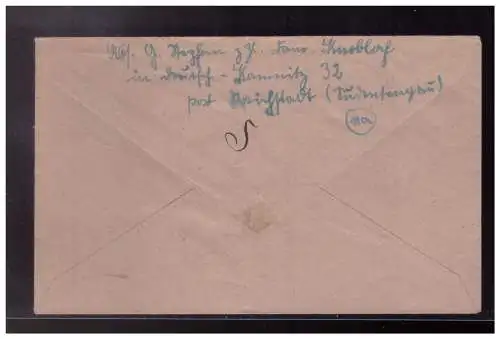 Abs. G. Stephan z. Zt. Fam. Knobloch
in Deutsch-Kamnitz 32
post Reichstadt (Sudetengau)
11a